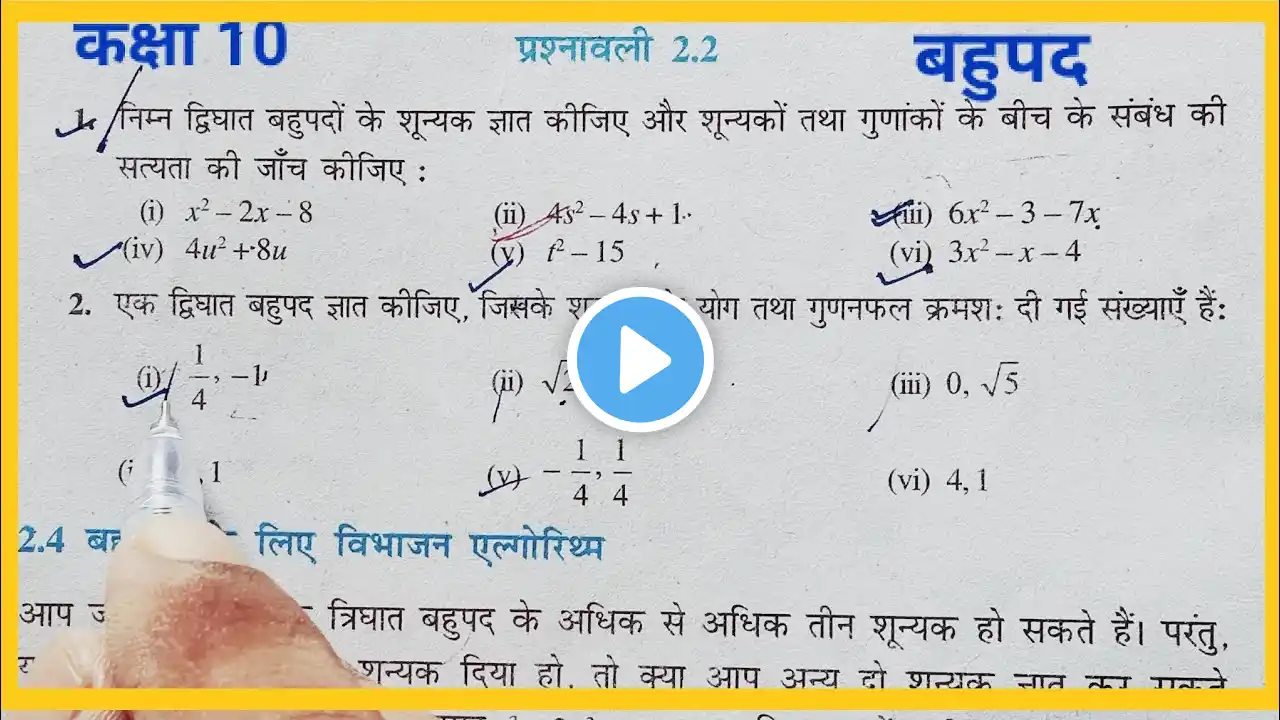 कक्षा 10 प्रश्नावली 2.2 बहुपद
1. निम्न द्विघात बहुपदों के शून्यक ज्ञात कीजिए और शून्यकों तथा गुणांकों के बीच के संबंध की
सत्यता की जाँच कीजिए :
(i) x² – 2x – 8 (ii) 4s² – 4s + 1 (iii) 6x² – 3 – 7x
(iv) 4u² + 8u (v) t² – 15 (vi) 3x² – x – 4
2. एक द्विघात बहुपद ज्ञात कीजिए, जिसके योग तथा गुणनफल क्रमश: दी गई संख्याएँ हैं:
(i) 1/4, –1 (ii) (iii) 0, √5
, 1 (v) – 1/4, 1/4 (vi) 4, 1
2.4 लिए विभाजन एल्गोरिथ्म
आप त्रिघात बहुपद के अधिक से अधिक तीन शून्यक हो सकते हैं। परंतु,
शून्यक दिया हो, तो क्या आप अन्य दो शून्यक ज्ञात कर सकते